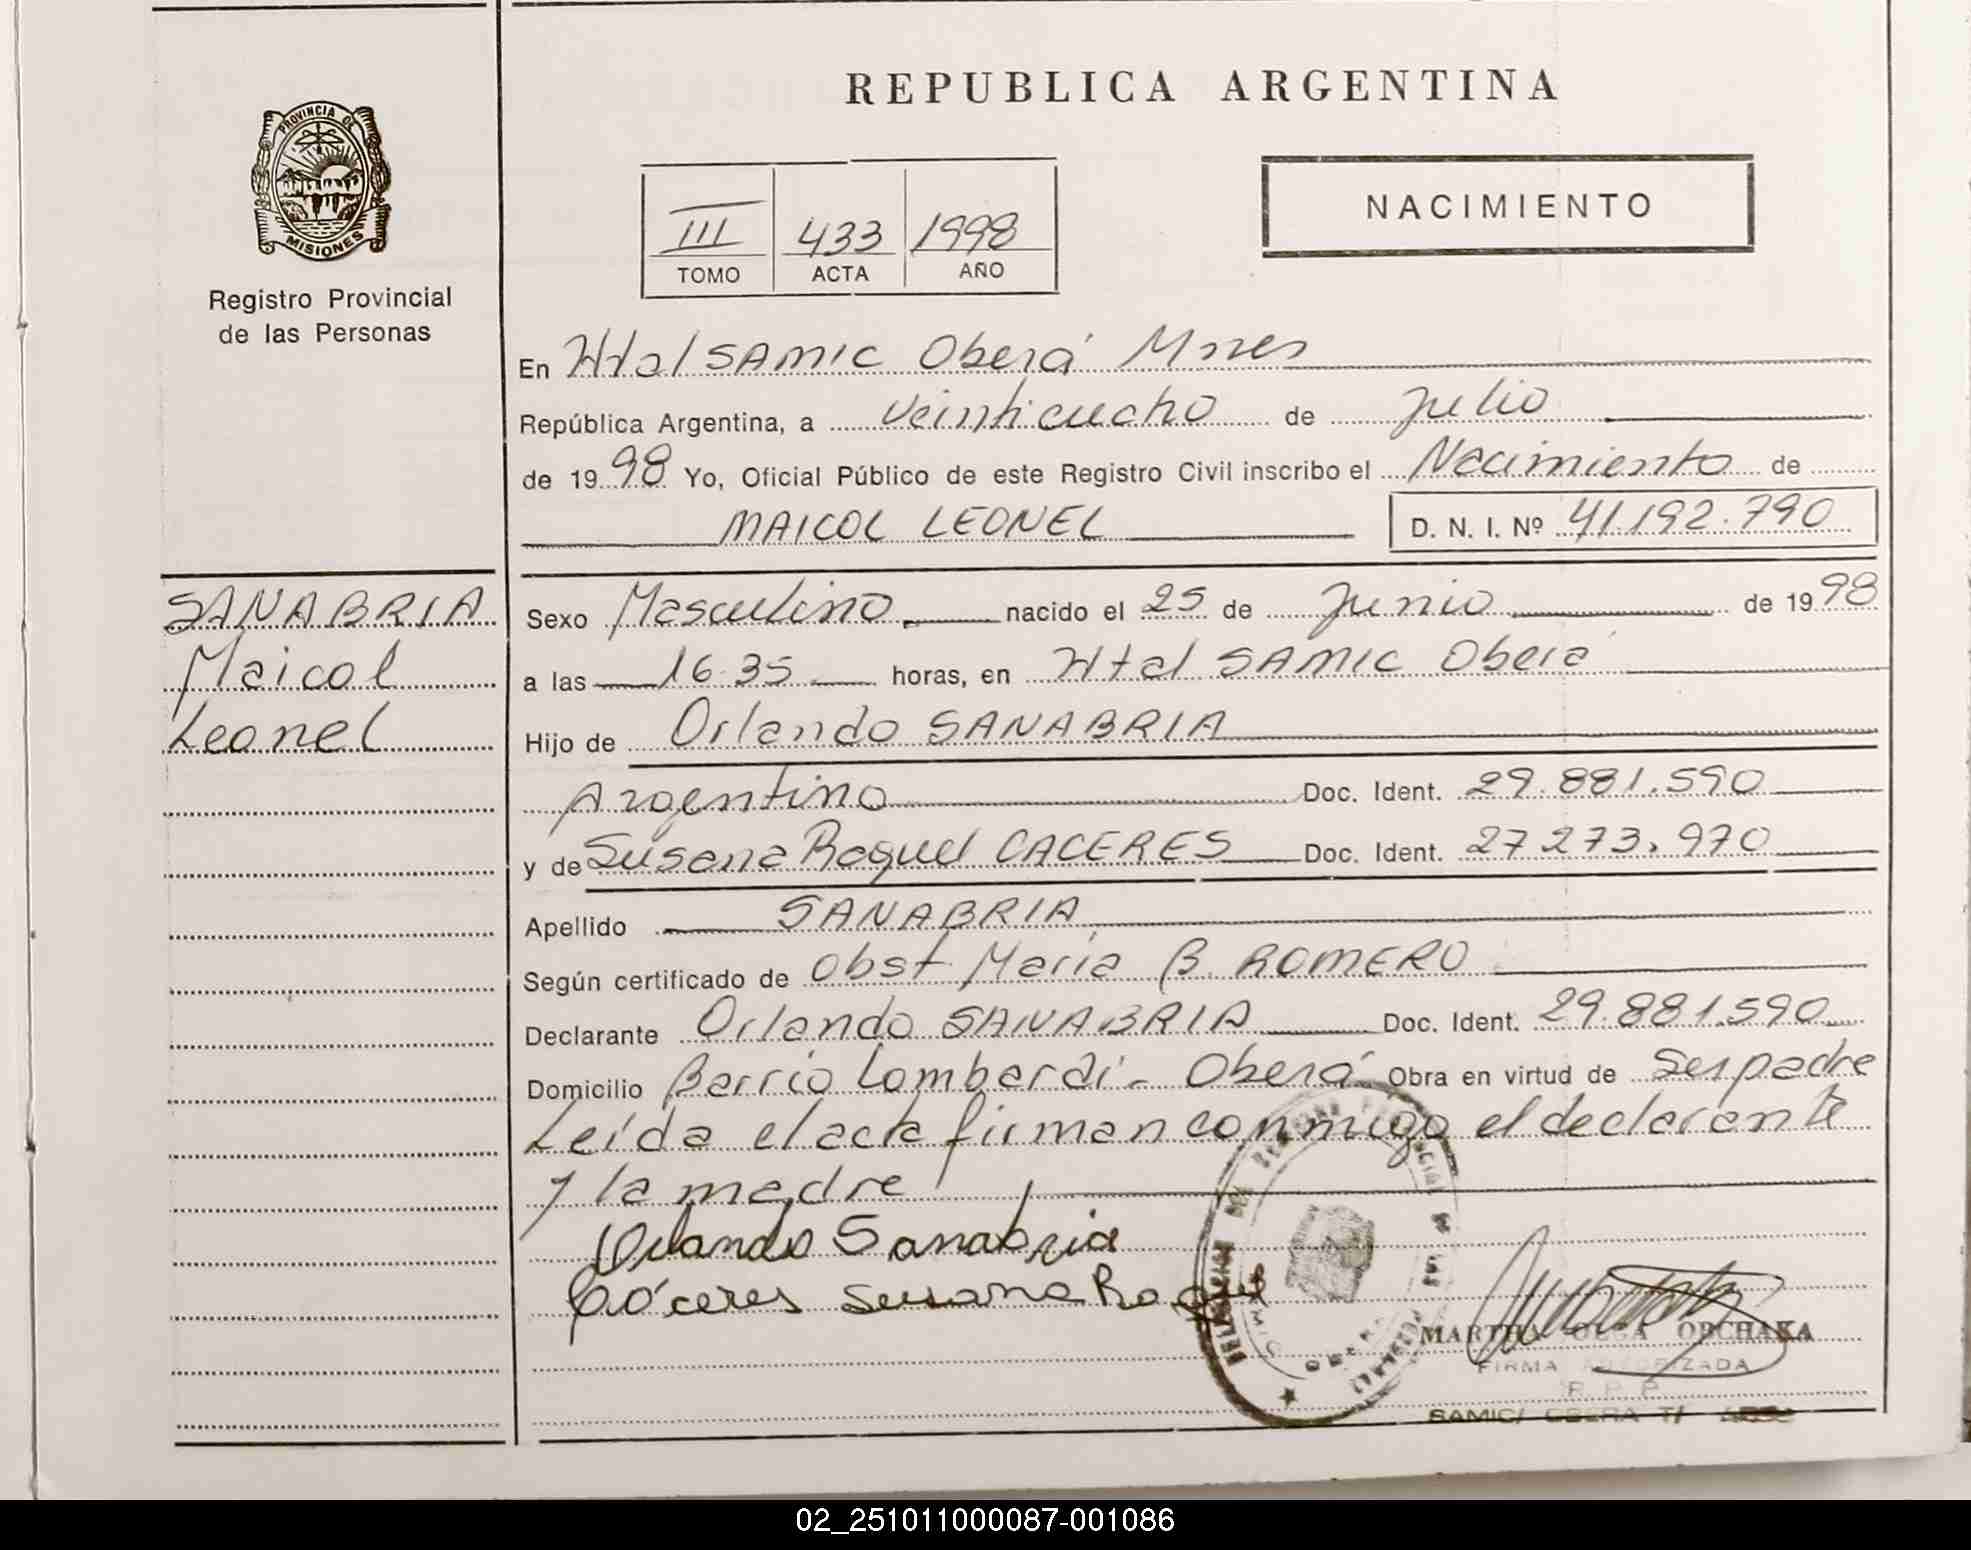 REPUBLICA ARGENTINA
PROVINCIA DE
MISIONES
Registro Provincial
de las Personas
III 433 1998
TOMO ACTA AÑO
NACIMIENTO
En Htal SAMIC Oberá Mnes
República Argentina, a veintiocho de Julio
de 1998 Yo, Oficial Público de este Registro Civil inscribo el Nacimiento de
MAICOL LEONEL D. N. I. Nº 41.192.790
SANABRIA
Maicol
Leonel
Sexo Masculino nacido el 25 de Junio de 1998
a las 16.35 horas, en Htal SAMIC Oberá
Hijo de Orlando SANABRIA
Argentino Doc. Ident. 29.881.590
y de Susana Raquel CACERES Doc. Ident. 27.273.970
Apellido SANABRIA
Según certificado de Obst. María B. ROMERO
Declarante Orlando SANABRIA Doc. Ident. 29.881.590
Domicilio Barrio Lombardi - Oberá Obra en virtud de ser padre
Leída el acta firman conmigo el declarante
y la madre
Orlando Sanabria
Cáceres Susana Raquel
MARTHA OLGA ORCHAKA
FIRMA AUTORIZADA
R P P
SAMIC/ OBERA T/
02_251011000087-001086